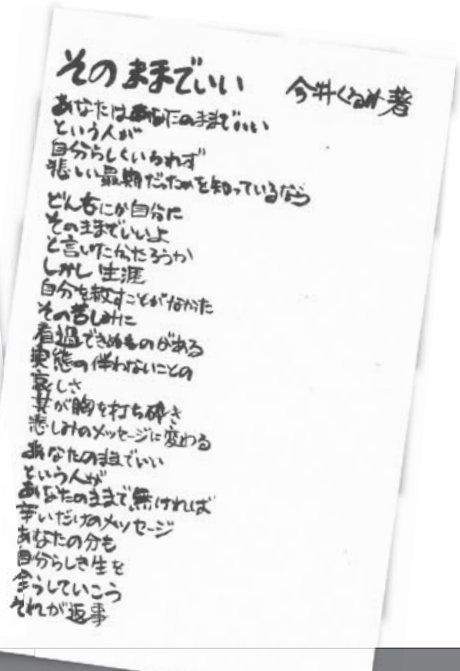 そのままでいい 今井くるみ著
あなたはあなたのままでいい
という人が
自分らしくいられず
悲しい最期だったのを知っているなら
どんなにか自分に
そのままでいいよ
と言いたかったろうか
しかし生涯
自分を赦すことがなかった
その苦しみに
看過できぬものがある
実態の伴わないことの
哀しさ
其が胸を打ち砕き
悲しみのメッセージに変わる
あなたのままでいい
という人が
あなたのままで無ければ
辛いだけのメッセージ
あなたの分も
自分らしき生を
全うしていこう
それが返事